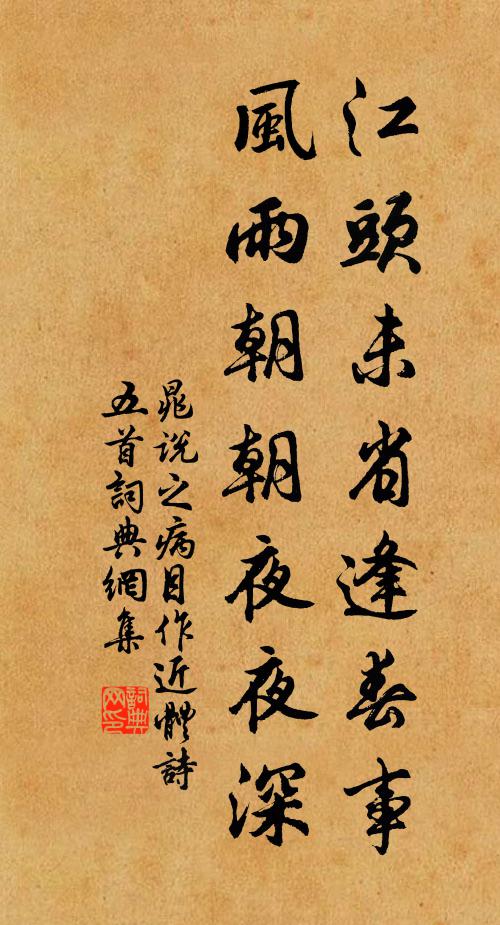 江頭未省逢春事
風雨朝朝夜夜深
晁說之病目作近體詩
五首詞典網集
詞典网印